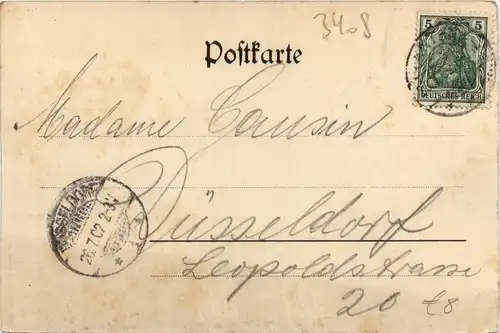 3408
Postkarte
5
DEUTSCHES REICH
Madame Cousin
Düsseldorf
26.7.02 2-3N
Leopoldstrasse
20
£8